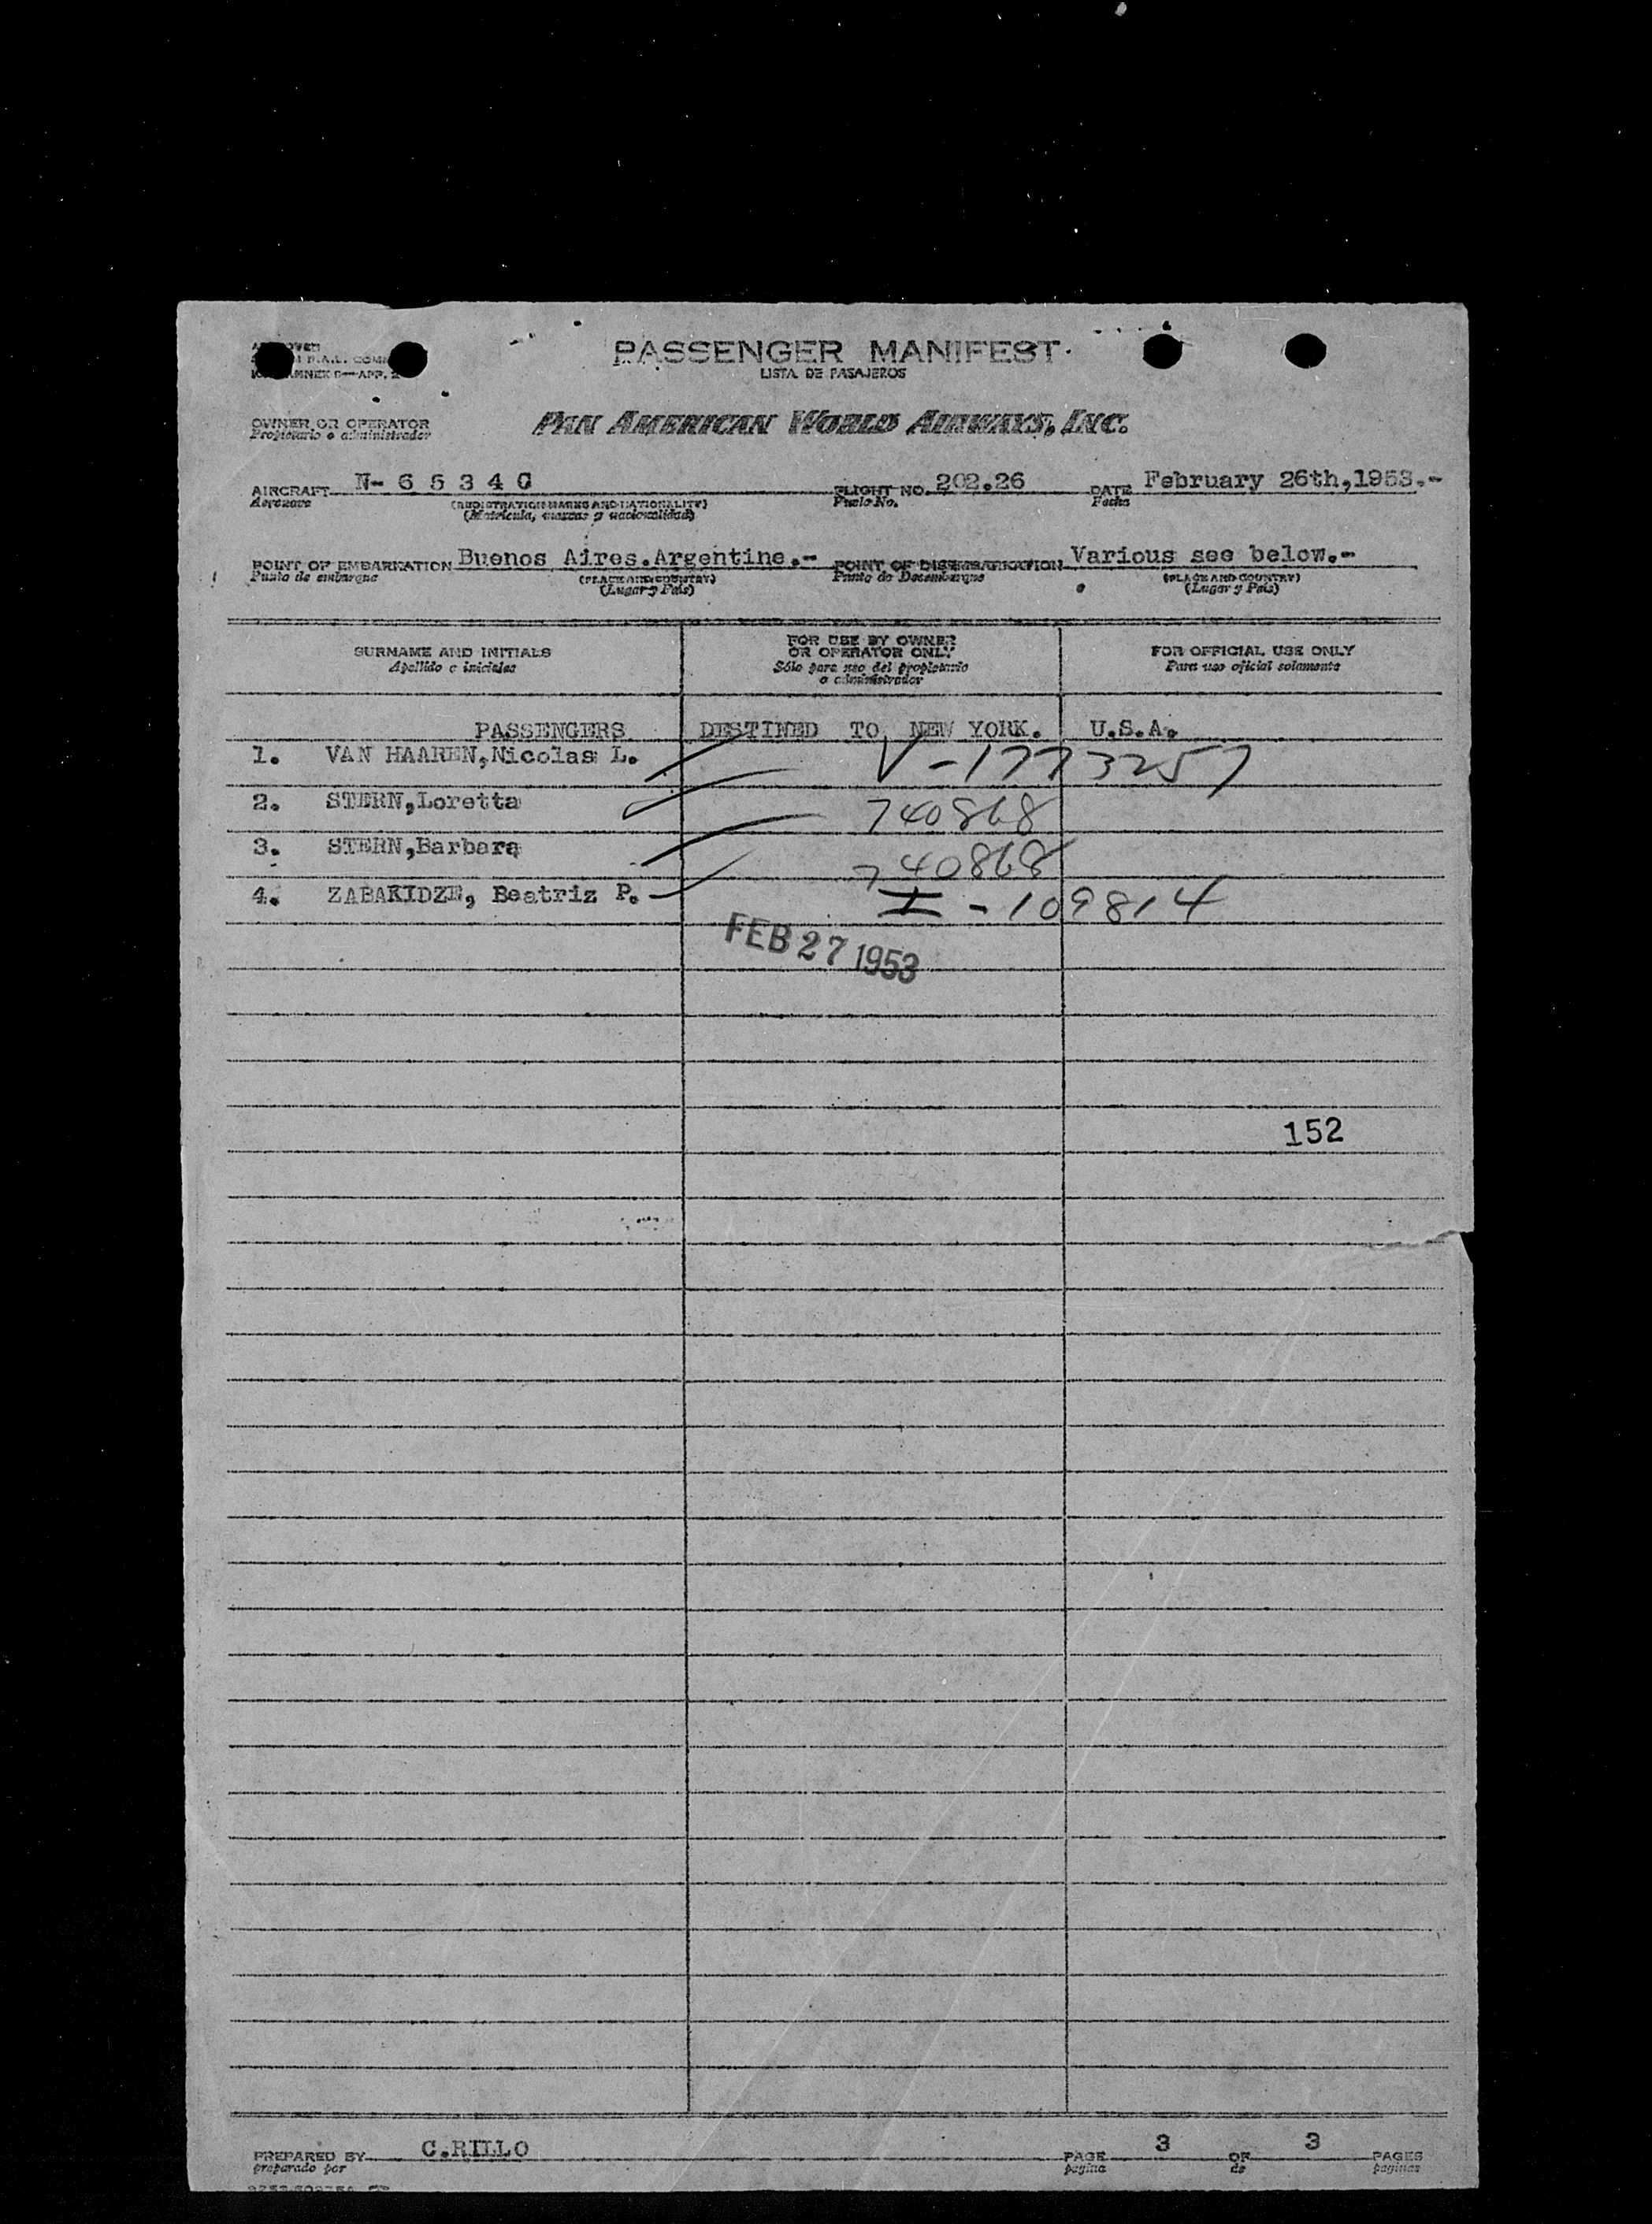 PASSENGER MANIFEST
LISTA DE PASAJEROS
OWNER OR OPERATOR
Propietario o administrador
PAN AMERICAN WORLD AIRWAYS, INC.
AIRCRAFT N- 6 5 3 4 C FLIGHT NO. 202.26 DATE February 26th,1953.-
Aeronave (REGISTRATION MARKS AND NATIONALITY) Vuelo No. Fecha
(Matrícula, marcas y nacionalidad)
POINT OF EMBARKATION Buenos Aires.Argentine.- POINT OF DISEMBARKATION Various see below.-
Punto de embarque (PLACE AND COUNTRY) Punto de Desembarque (PLACE AND COUNTRY)
(Lugar y País) (Lugar y País)
SURNAME AND INITIALS
Apellido e iniciales
FOR USE BY OWNER
OR OPERATOR ONLY
Sólo para uso del propietario
o administrador
FOR OFFICIAL USE ONLY
Para uso oficial solamente
PASSENGERS DESTINED TO NEW YORK. U.S.A.
1. VAN HAAREN,Nicolas L. V-1773257
2. STERN,Loretta 740868
3. STERN,Barbara 740868
4. ZABAKIDZE, Beatriz P. I-109814
FEB 27 1953
152
PREPARED BY C.RILLO PAGE 3 OF 3 PAGES
preparado por pagina de paginas